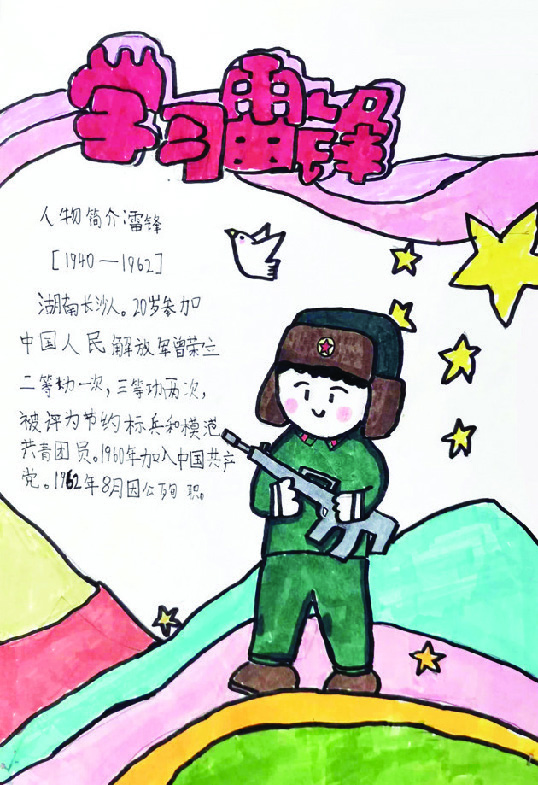 学习雷锋
人物简介雷锋
[1940—1962]
湖南长沙人。20岁参加
中国人民解放军曾荣立
二等功一次，三等功两次，
被评为节约标兵和模范
共青团员。1960年加入中国共产
党。1962年8月因公殉职。